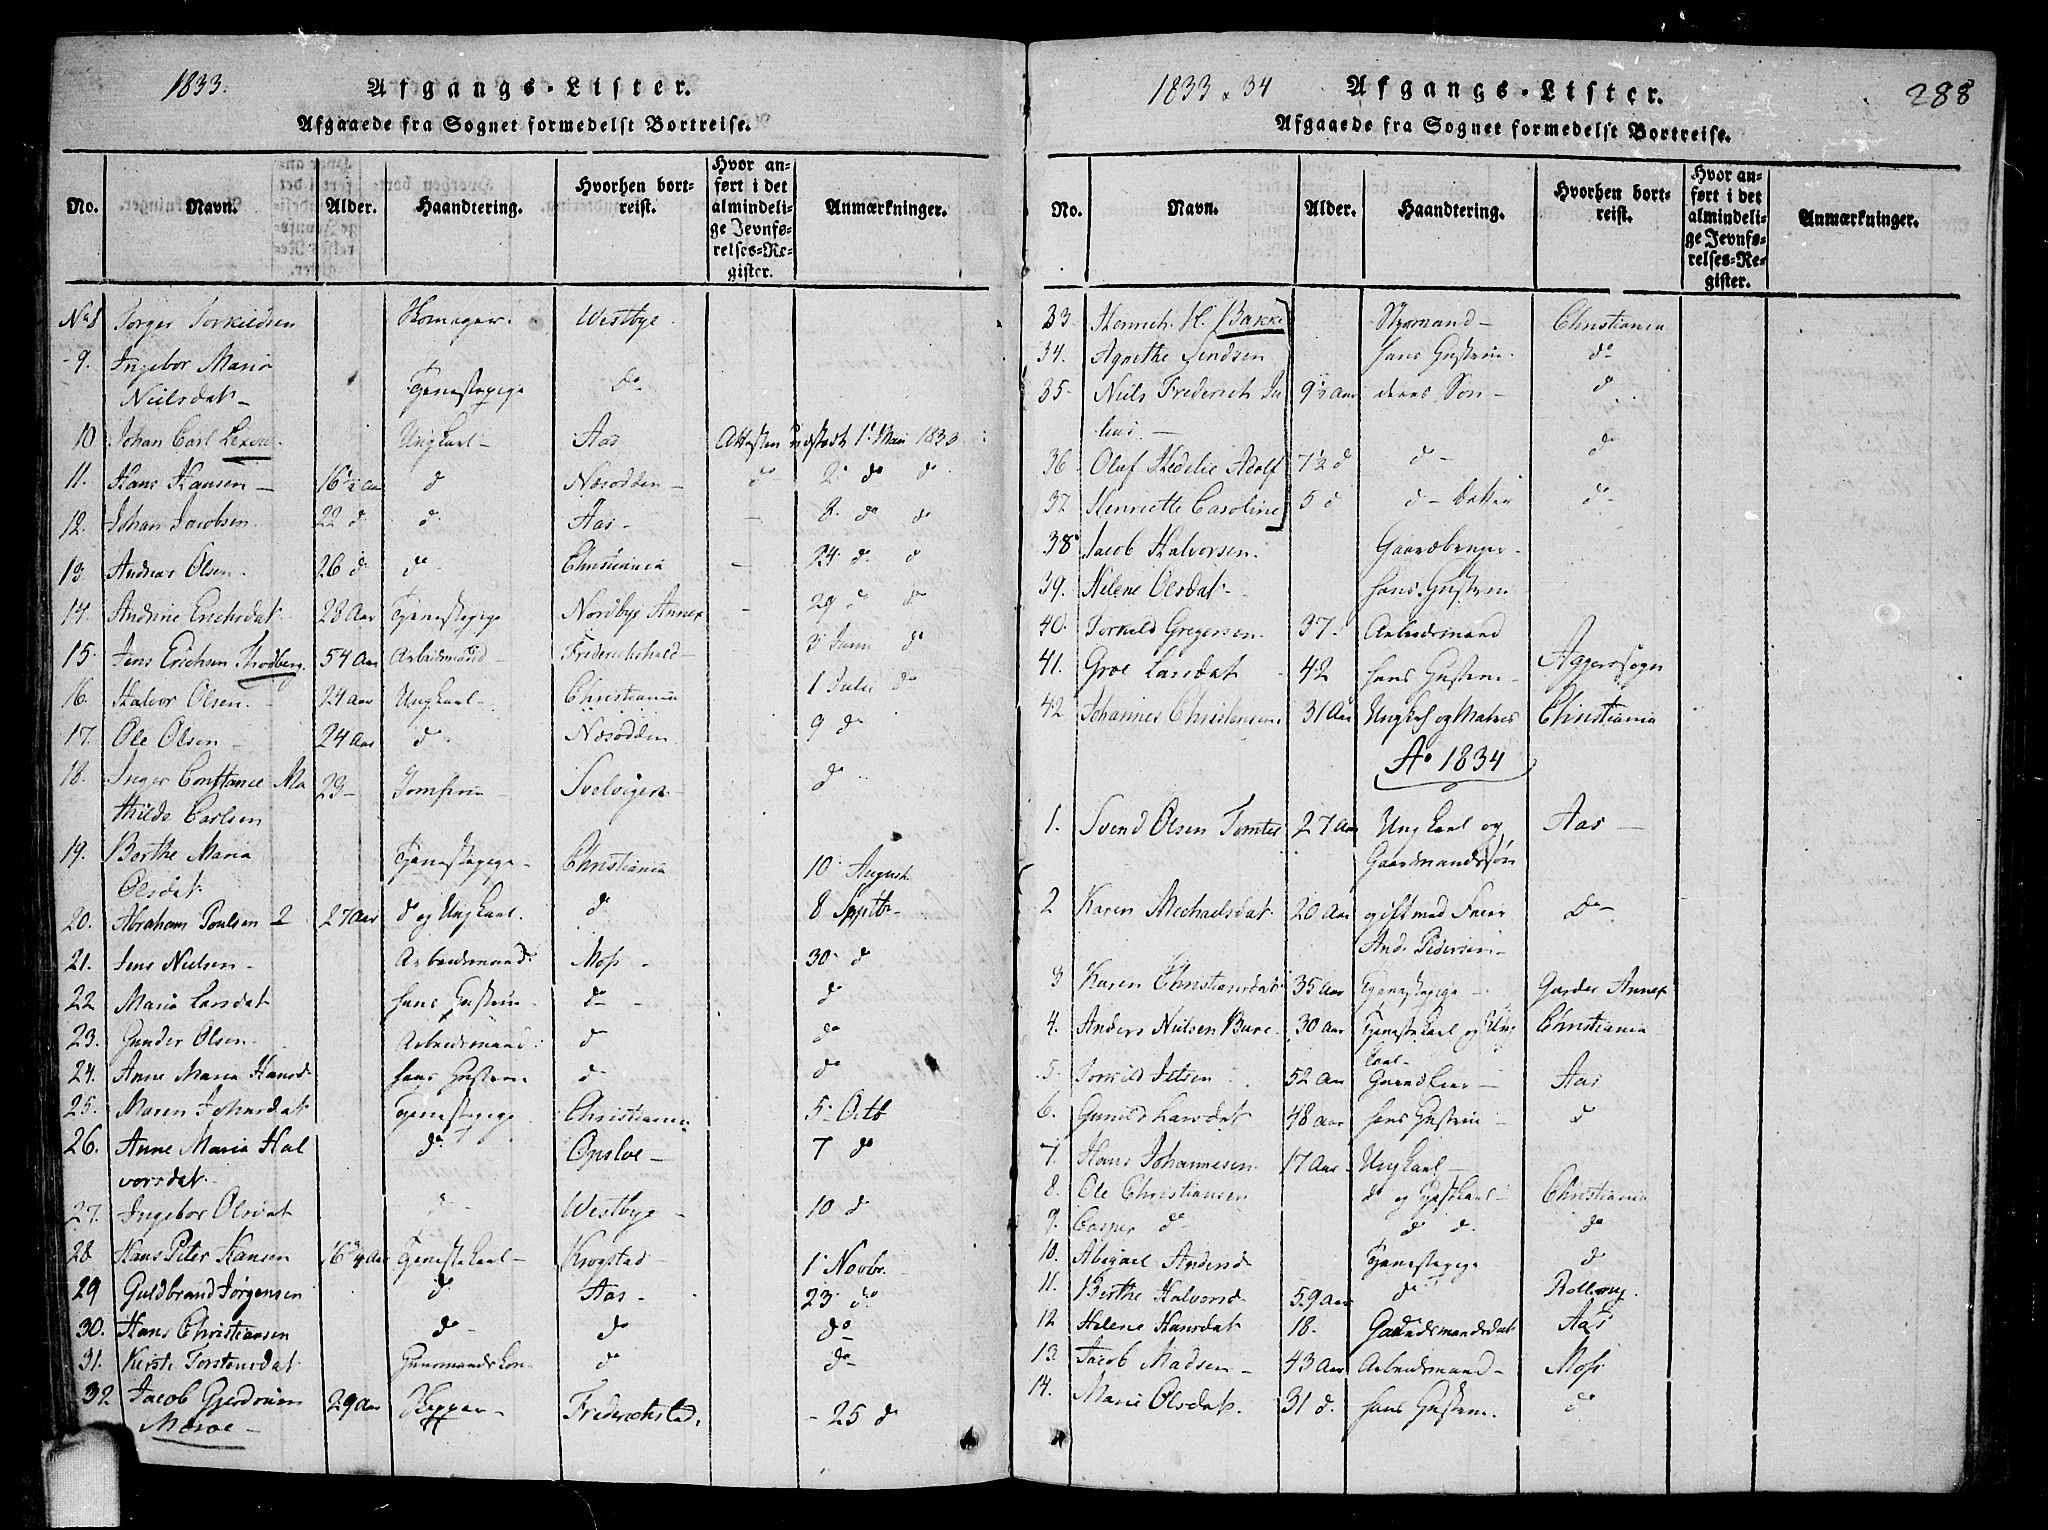 1833.
Afgangs-Lister.
Afgaaede fra Sognet formedelst Bortreise.
No. Navn. Alder. Haandtering. Hvorhen bortreist. Hvor anført i det almindelige Jevnførelses-Register. Anmærkninger.
No 8 Torger Torkildsen Westbye
9. Ingebor Maria
Nielsdat. Tjenestepige do
10 Johan Carl Ungkarl Aas Attesten udstædt 1' Mai 1833
11. Hans Hansen 16½ Aar d Næsodden d 2 do do
12. Johan Jacobsen 22 d. d. Aas 8. do do
13 Andreas Olsen 26 d. do Christiania 24. d. d
14. Andrine Erichsdat. 28 Aar Tjenestepige Nordbye Annex 29 d do
15. Jens Erichsen Thodberg. 54 Aar Arbeidsmand Frederikshald 3' Juni do
16. Halvor Olsen 24 Aar Ungkarl Christiania 1 Julii do
17. Ole Olsen 24 Aar d Næsodden 9 do
18. Inger Constance Ma
thilde Carlsen 23 Jomfrue Svelvigen do
19. Berthe Maria
Olsdat. Tjenestepige Christiania 10. August
20. Abraham Poulsen 2 27 Aar d og Ungkarl. do 8 Septbr
21. Jens Nielsen Arbeidsmand Moss 30 d
22 Maria Larsdat hans Hustrue do do
23. Gunder Olsen Arbeidsmand d do
24. Anne Maria Hansd. hans Hustrue d do
25. Maren Johansdat Tjenestepige Christiania 5 Octb
26. Anne Maria Hal
vorsdat. do Opsloe 7 do
27. Ingebor Olsdat " Westbye 10 d
28 Hans Peter Hansen 16¾ Aar Tjenestekarl Krogstad 1' Novbr.
29 Guldbrand Jørgensen d. Aas 23 do
30. Hans Christiansen do do do
31. Kirsti Torstensdat do do
32. Jacob Gjerdrum
Mæroe 29 Aar Frederichstad. 25 d
1833 & 34
Afgangs-Lister.
288
Afgaaede fra Sognet formedelst Bortreise.
No. Navn. Alder. Haandtering. Hvorhen bortreist. Hvor anført i det almindelige Jevnførelses-Register. Anmærkninger.
33. Henrich H. Bakke Styrmand Christiania
34. Agnethe hans Hustrue. do
35. Niels Frederich Ju
lius 9½ Aar deres Søn d
36 Oluf Adolf 7½ d d do
37 Henriette Caroline 5 d d Datter do
38 Jacob Halvorsen. Gaardbruger
39. Helene Olsdat. hans Hustrue
40. Torkild Gregersen. 37. Arbeidsmand
41. Groe Larsdat 42 hans Hustrue Aggers Sogn
42 Johannes Christensen 31 Aar Ungkarl og Matros Christiania
Ao 1834
1. Svend Olsen Tomter 27 Aar Ungkarl og Aas
Gaardmandssøn
2 Karen Mechaelsdat 20 Aar gift med Do
And. Pedersen
3 Karen Christiansdat 35 Aar Tjenestepige Garder Annex
4. Anders Nielsen 30 Aar Tjenestekarl og Ung Christiania
karl
5. Torkild 52 Aar Aas
6. Gunild Larsdat 48 Aar hans Hustrue d
7. Hans Johannesen 17 Aar Ungkarl
8. Ole Christiansen d og Christiania
9. Casper do d d. do
10. Abigael Andersd Tjenestepige d
11. Berthe Halvorsd. 59 Aar do
12 Helene Hansdat 18. Gaardmandsdat Aas
13. Jacob Madsen 43 Aar Arbeidsmand Moss
14. Marie Olsdat. 31 d. hans Hustrue. do